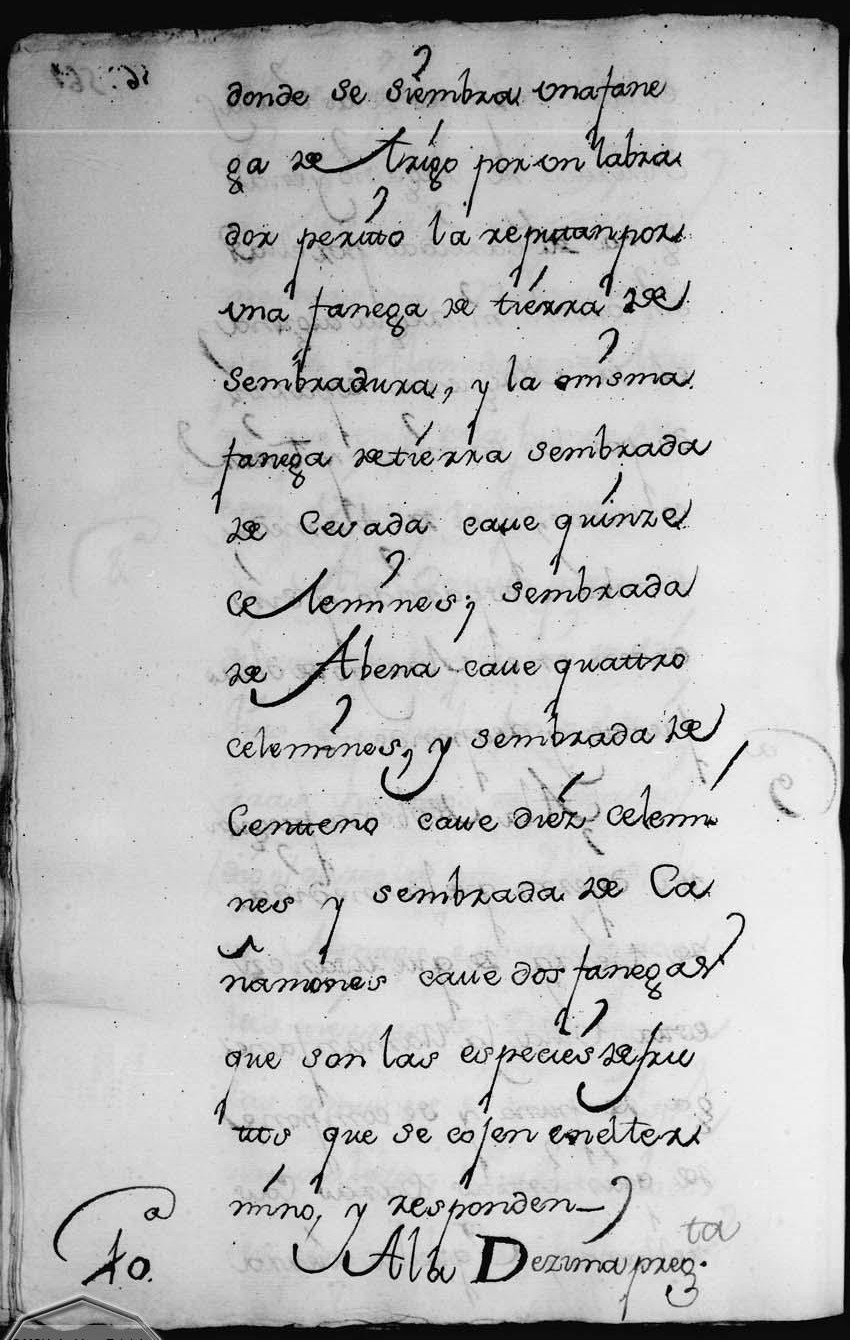 donde se siembra una fane
ga de Trigo por un labra
dor peritto la reputtan por
una fanega de tiérra de
Sembradura, y la misma
fanega de tiérra sembrada
de Cevada caue quinze
celemines; sembrada
de Abena caue quattro
celemines, y sembrada de
Centteno caue diéz celemi
nes y sembrada de Ca
ñamones caue dos fanegas
que son las especiés de fru
ttos que se cojen en el ter
mino, y responden
10.ª A la Dezima preg.ta